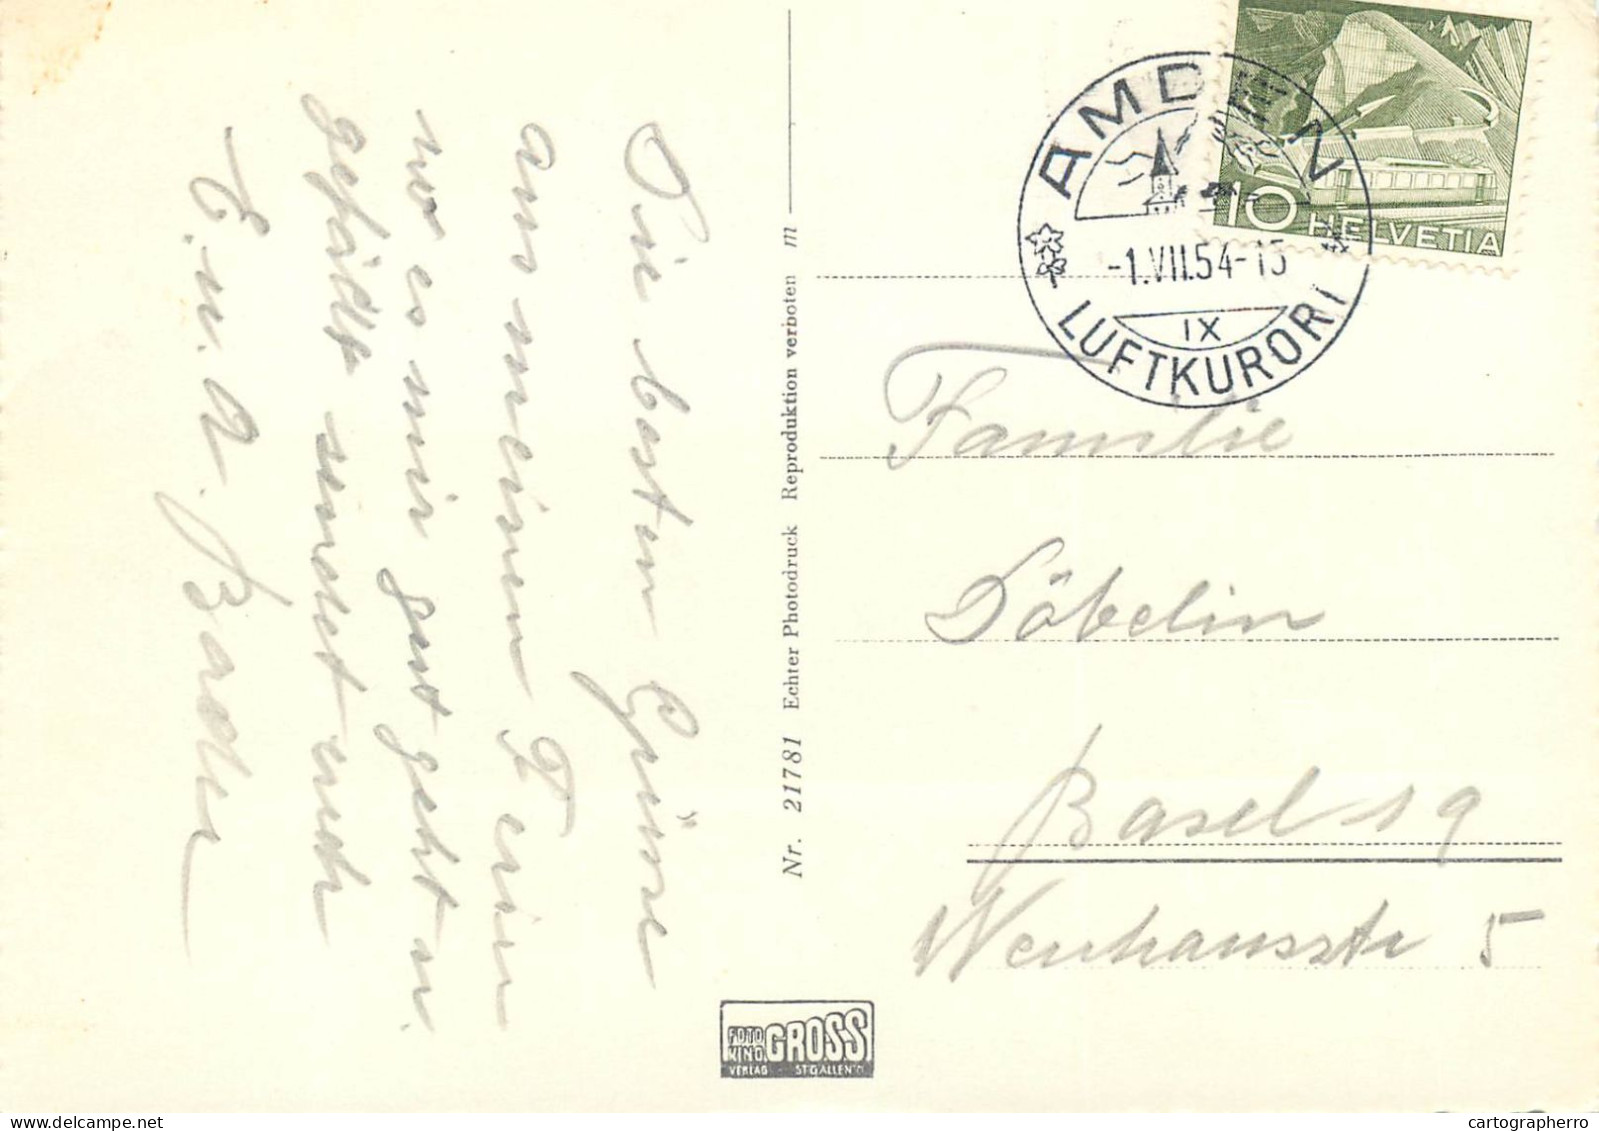 Die besten Grüsse
aus meinen Ferien
wo es mir gut geht u.
gefällt sendet euch
E. u. A. Bader
Nr. 21781 Echter Photodruck Reproduktion verboten m
AMDEN
-1.VII.54-15
IX
LUFTKURORT
10 HELVETIA
Familie
Döbelin
Basel 19
Neuhausstr 5
FOTO
KINO GROSS
VERLAG ST.GALLEN
cartographerro